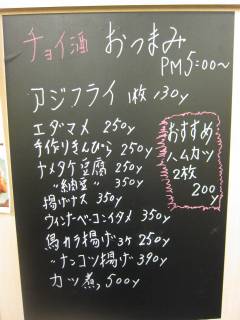 チョイ酒 おつまみ
PM5:00~
アジフライ 1枚 130y
エダマメ 250y
手作りきんぴら 250y
ナメタケ豆腐 250y
〃 納豆 〃 350y
揚げナス 350y
ウィンナーベーコンイタメ 350y
鳥カラ揚げ3ケ 250y
〃ナンコツ揚げ 390y
カツ煮 500y
おすすめ
ハムカツ
2枚
200
y